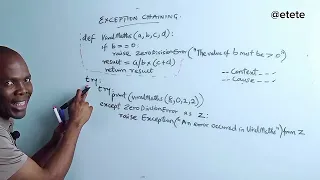 @etete
EXCEPTION CHAINING.
def WorldMaths(a,b,c,d):
if b == 0:
raise ZeroDivisionError("The value of b must be > 0")
result = a/b*(c+d)
return result
__context__
__cause__
try:
try
print(WorldMaths(8,0,2,2))
except ZeroDivisionError as Z:
raise Exception("An error occurred in WorldMaths") from Z